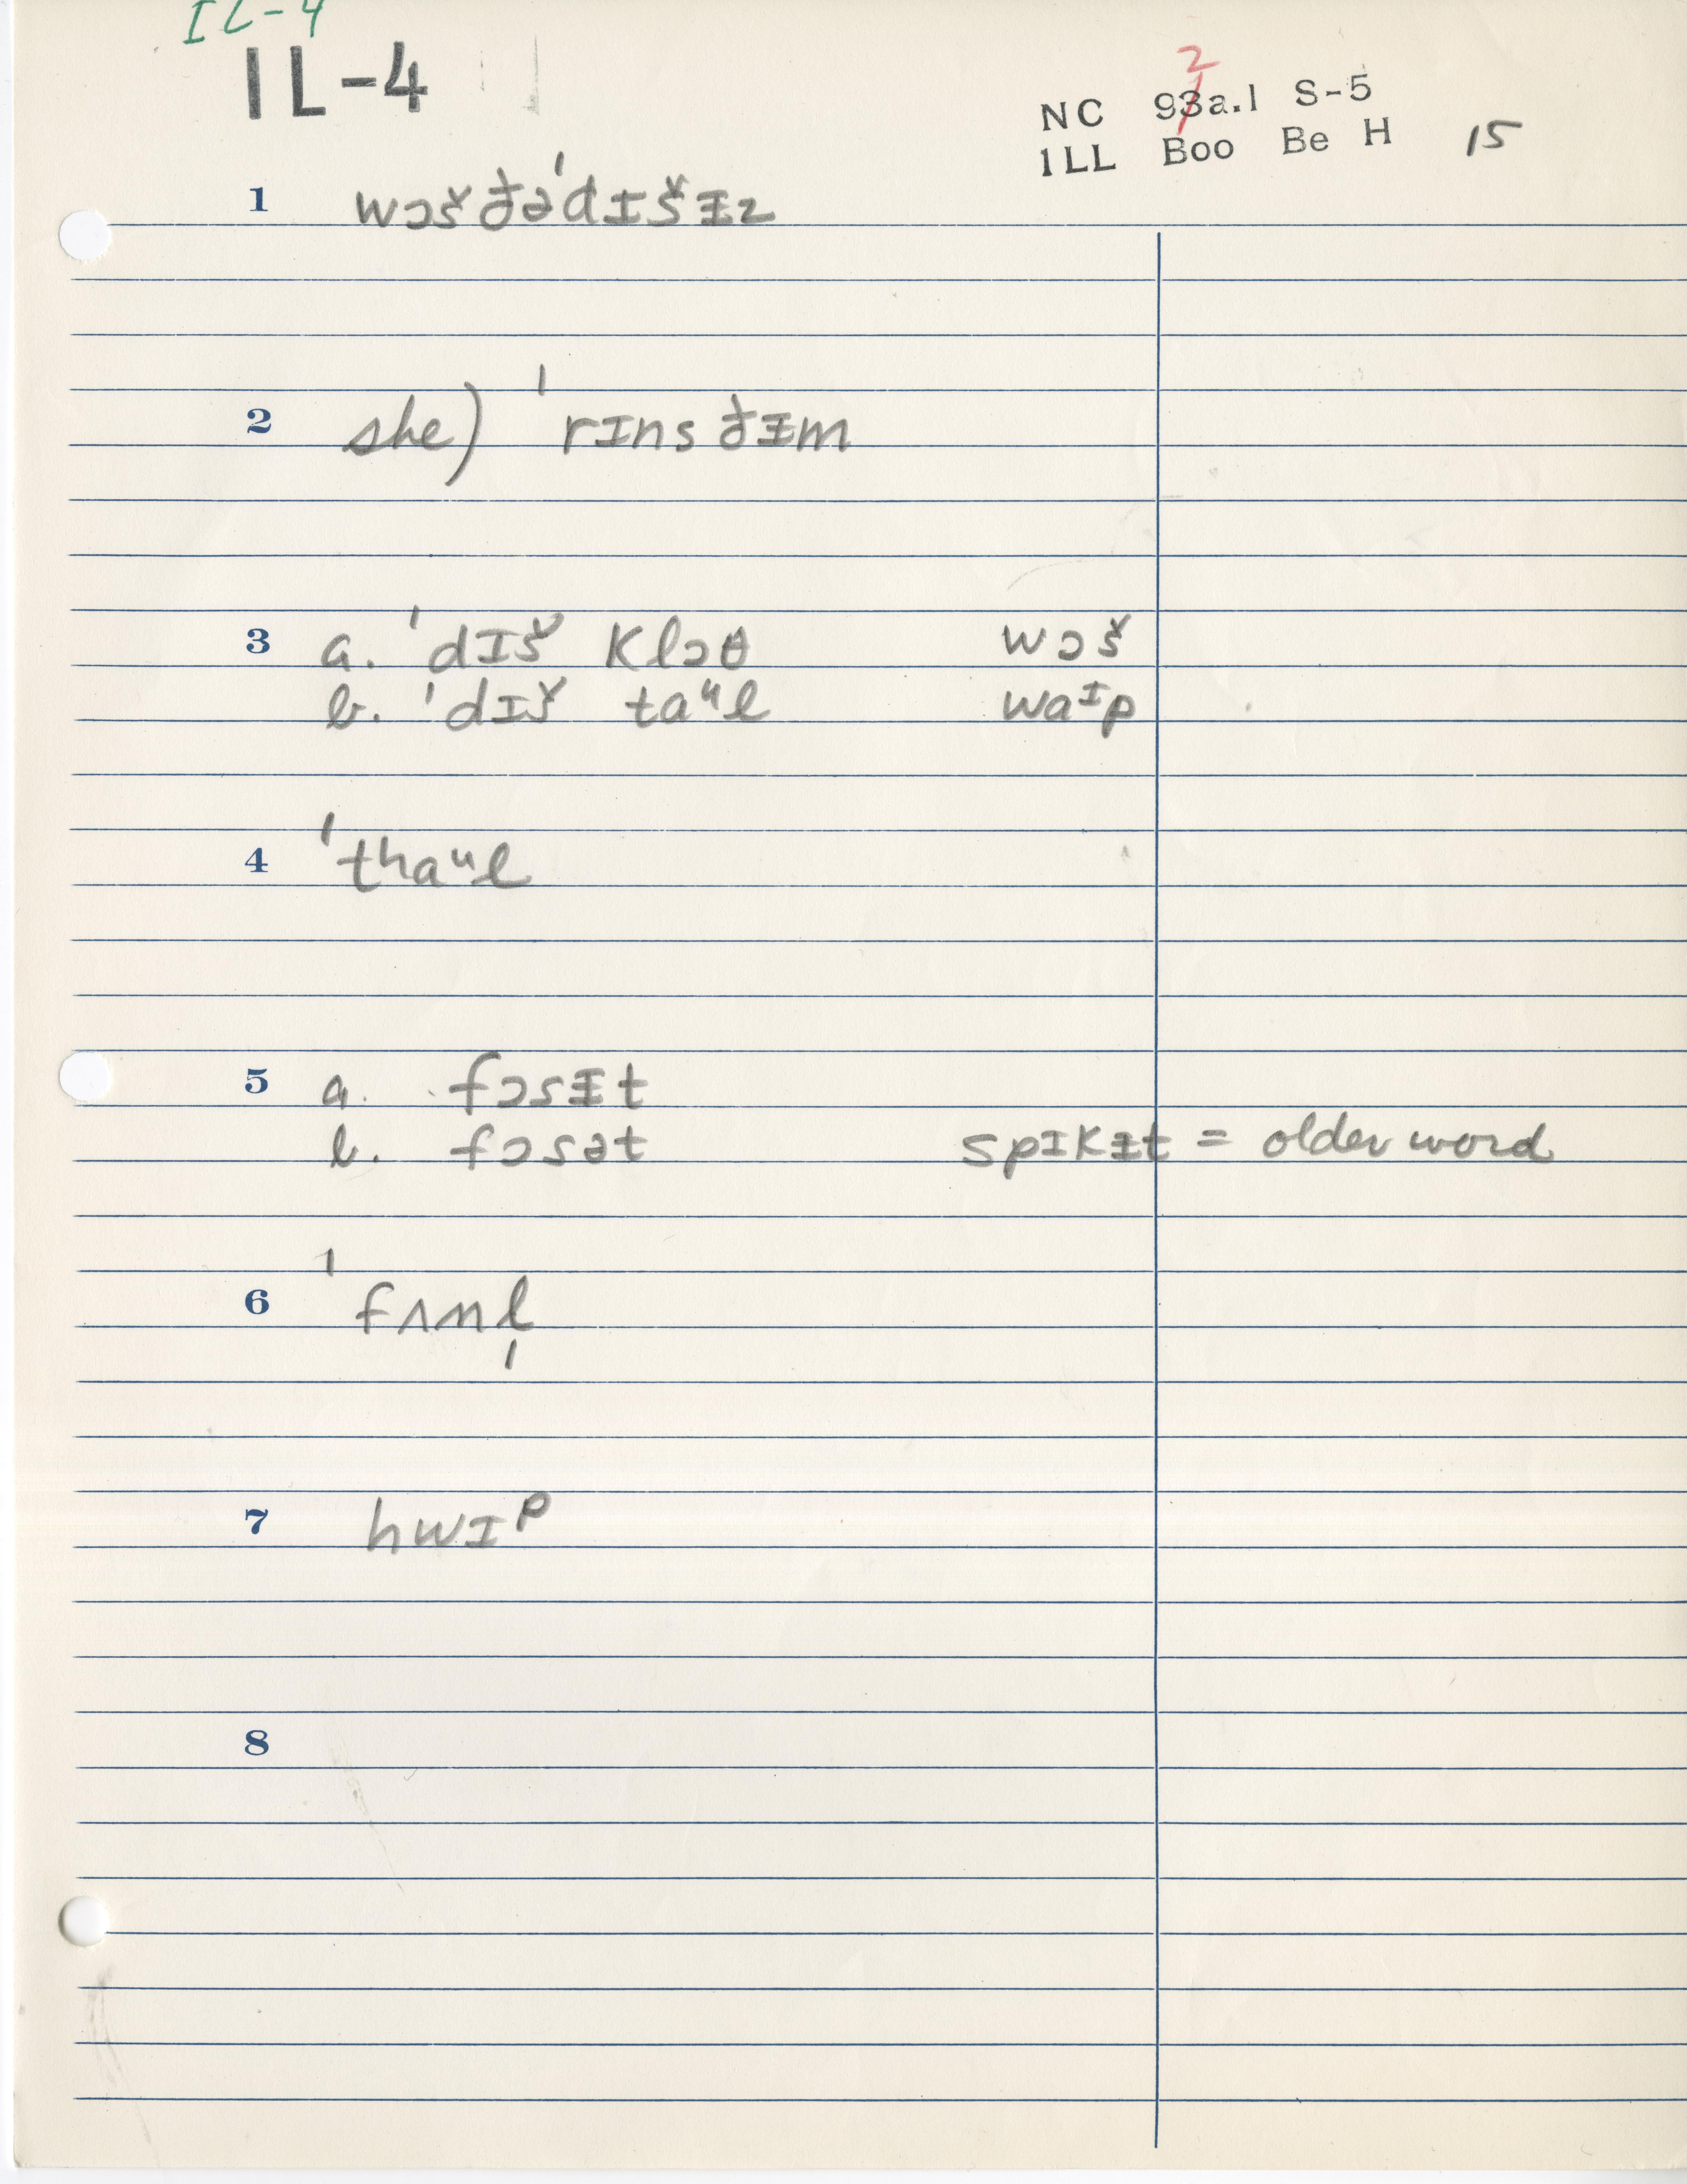 IL-4
IL-4
NC 93a.1 S-5
2
ILL Boo Be H 15
1 wɔšðəˈdɪšᵻz
2 she) ˈrɪns ðᵻm
3 a. ˈdɪš klɔθ wɔš
b. ˈdɪš taᵘl waᶦp
4 ˈthaᵘl
5 a. fɔsᵻt
b. fɔsət spɪkᵻt = older word
6 ˈfʌnl̩
7 hwɪᵖ
8